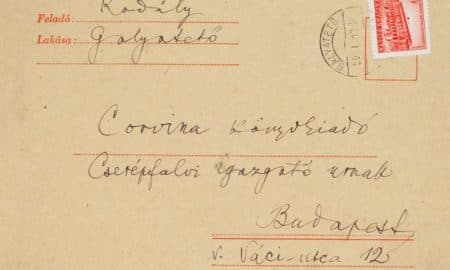 Feladó: Kodály
Lakása: Galyatető
GALYATETŐ
Corvina Könyvkiadó
Cserépfalvi igazgató urnak
Budapest
V. Váci-utca 12